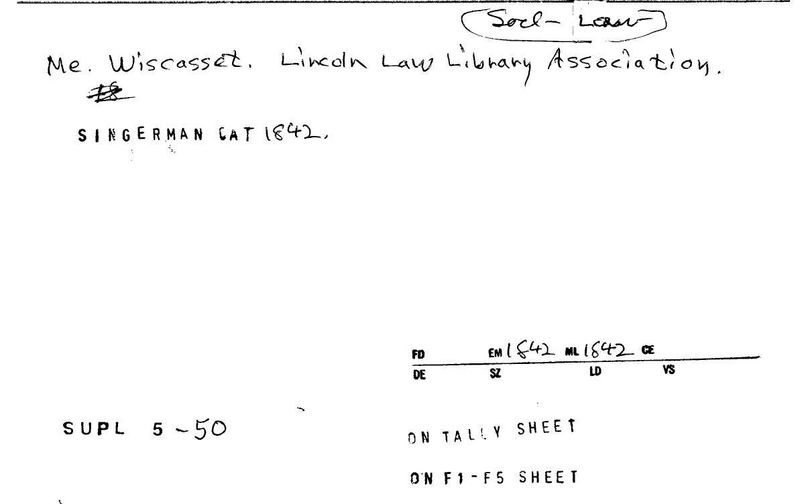 Socl- Law
Me. Wiscasset. Lincoln Law Library Association.
SINGERMAN CAT 1842.
FD EM 1842 ML 1842 CE
DE SZ LD VS
SUPL 5-50
ON TALLY SHEET
ON F1-F5 SHEET